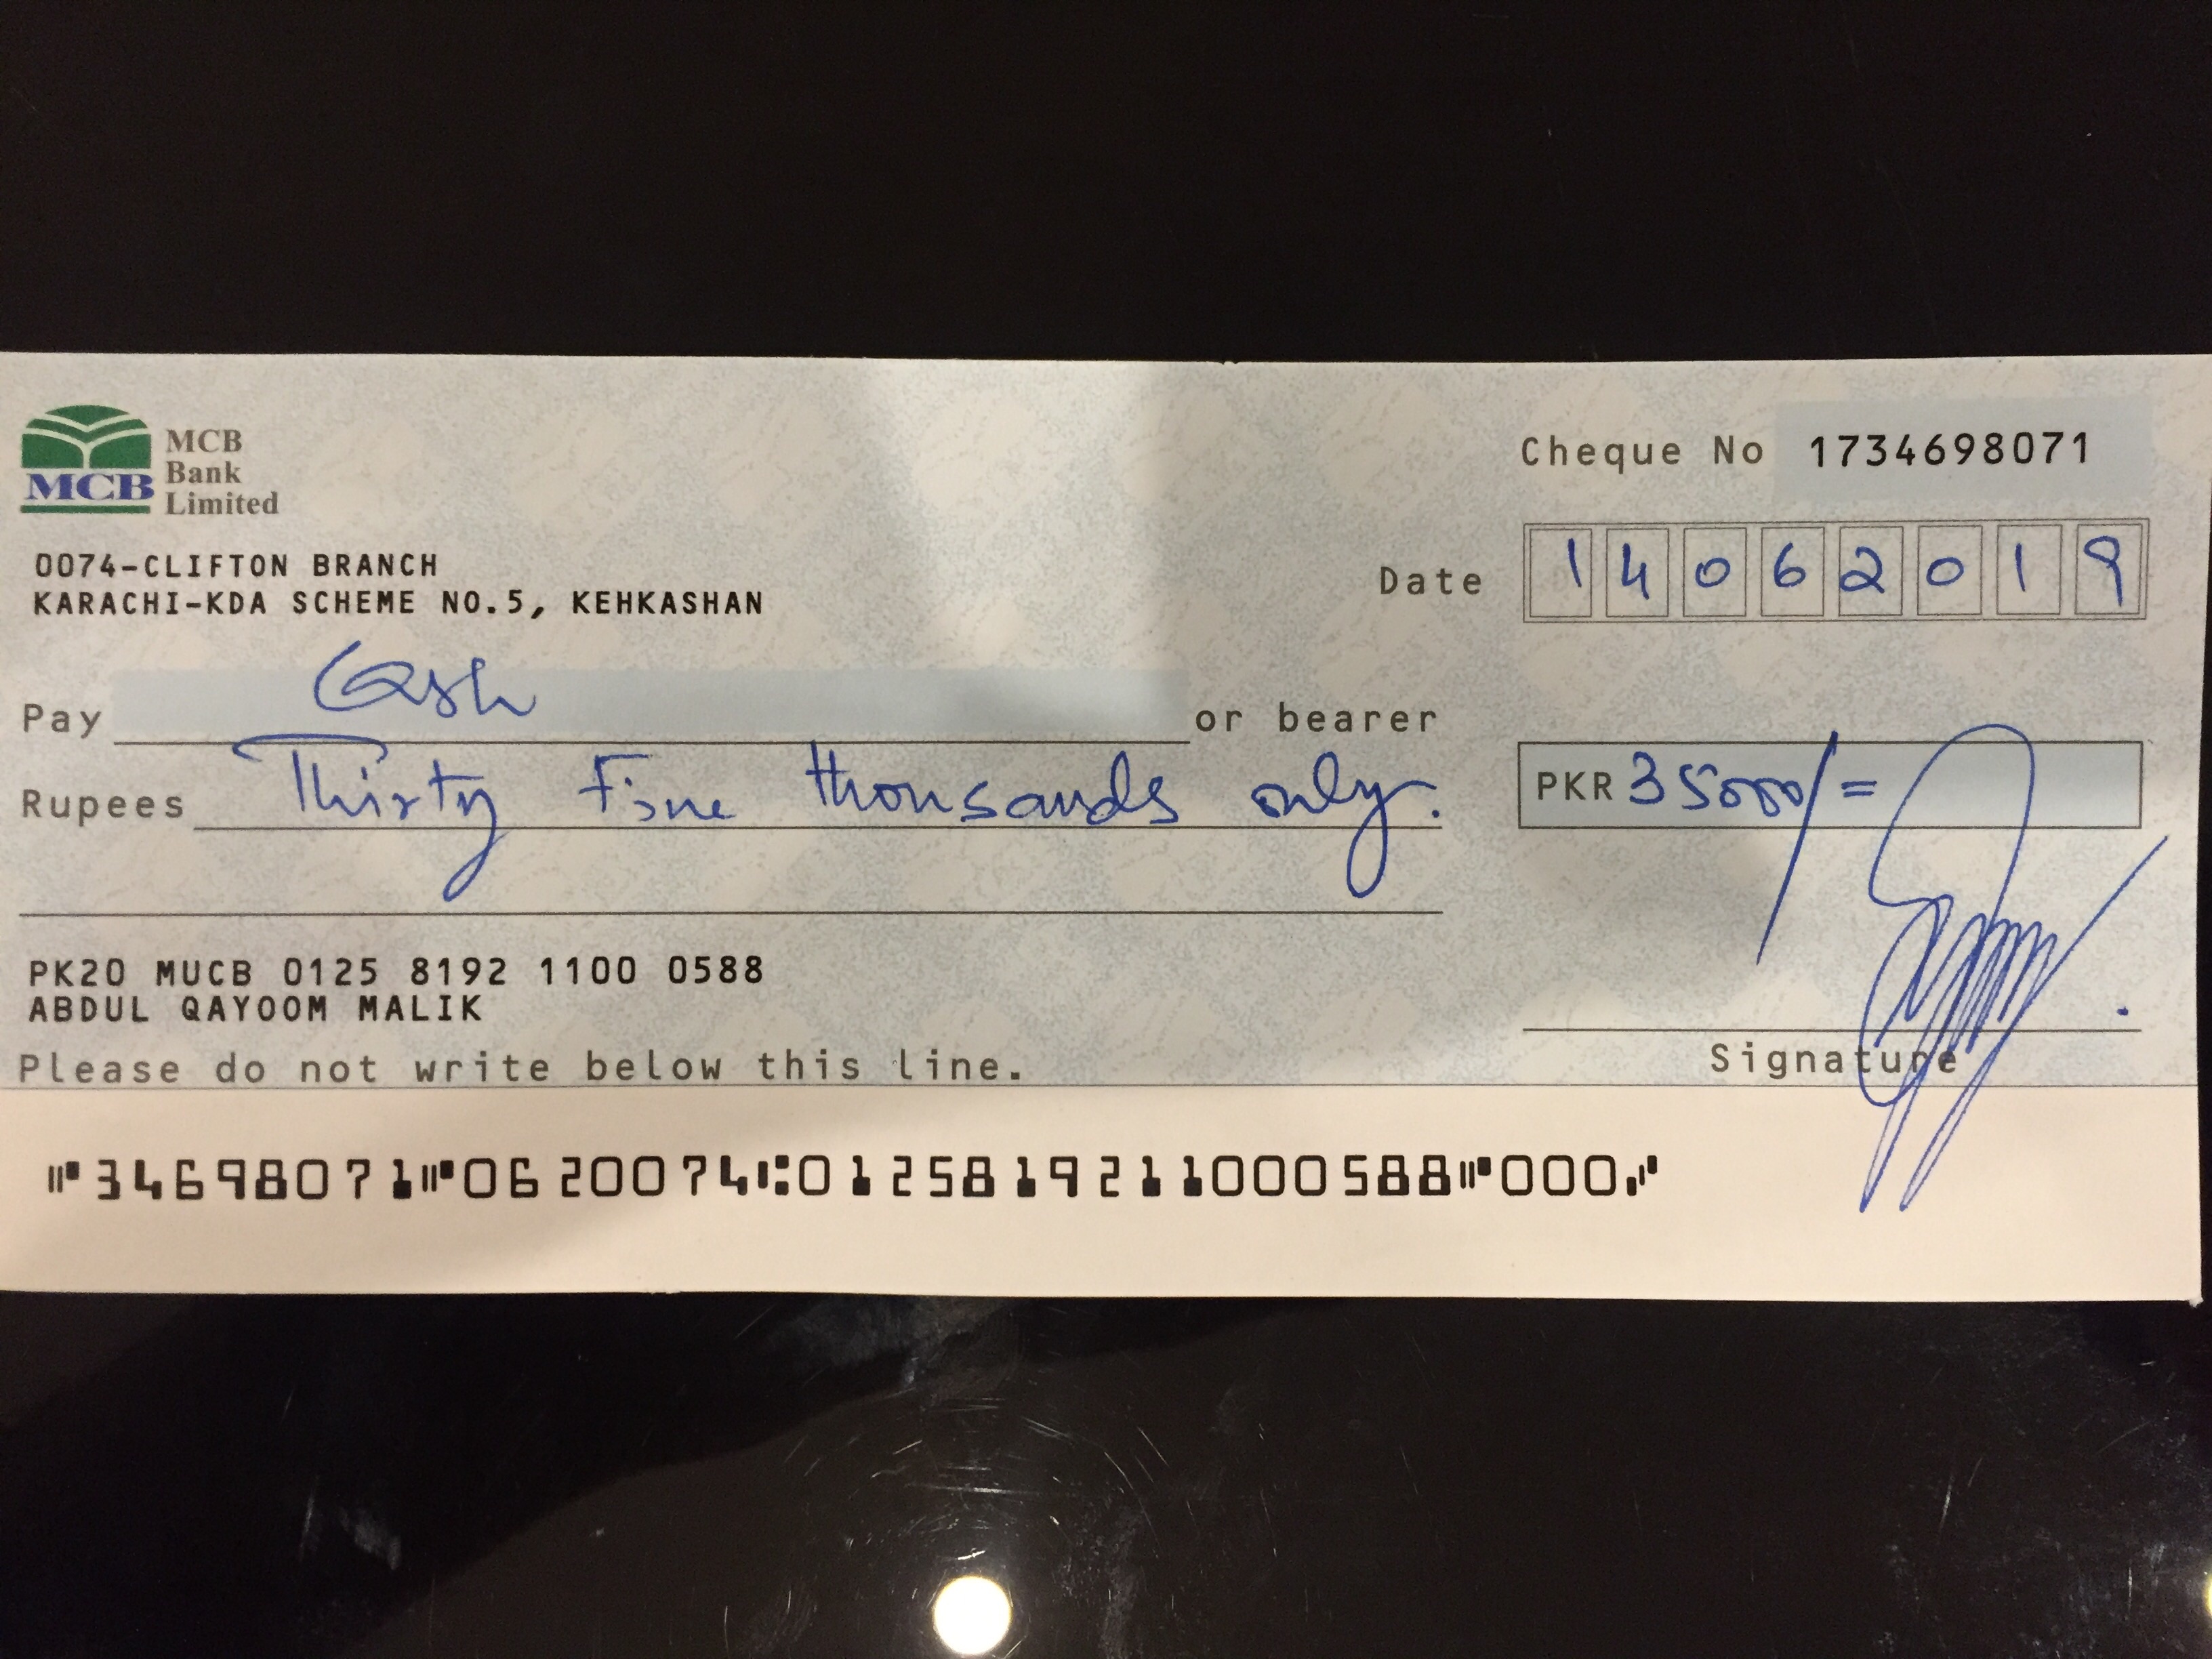 MCB
MCB
Bank
Limited
Cheque No 1734698071
0074-CLIFTON BRANCH
KARACHI-KDA SCHEME NO.5, KEHKASHAN
Date 14062019
Pay Cash or bearer
Rupees Thirty five thousands only.
PKR 35000/=
PK20 MUCB 0125 8192 1100 0588
ABDUL QAYOOM MALIK
Signature
Please do not write below this line.
⑈34698071⑈0620074⑆0125819211000588⑈000⑈